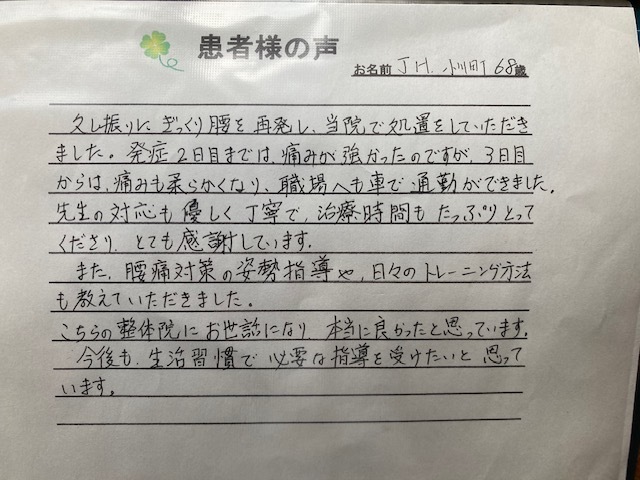 患者様の声
お名前 J H. 小川町 68歳
久し振りにぎっくり腰を再発し、当院で処置をしていただき
ました。発症2日目までは、痛みが強かったのですが、3日目
からは、痛みも柔らかくなり、職場へも車で通勤ができました。
先生の対応も優しく丁寧で、治療時間もたっぷりとって
くださり、とても感謝しています。
また、腰痛対策の姿勢指導や、日々のトレーニング方法
も教えていただきました。
こちらの整体院にお世話になり、本当に良かったと思っています。
今後も、生活習慣で必要な指導を受けたいと思って
います。